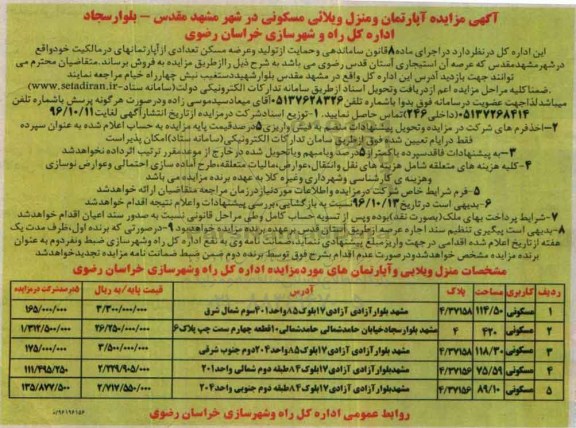 آگهی مزایده آپارتمان ومنزل ویلائی مسکونی در شهر مشهد مقدس – بلوارسجاد
اداره کل راه و شهرسازی خراسان رضوی
این اداره کل درنظردارد دراجرای ماده۸قانون ساماندهی وحمایت ازتولید وعرضه مسکن تعدادی ازآپارتمانهای درمالکیت خودواقع
درشهرمشهدمقدس که عرصه آن استیجاری آستان قدس رضوی می باشد به شرح ذیل راازطریق مزایده به فروش برساند.متقاضیان محترم می
توانند جهت بازدید آدرس این اداره کل واقع در مشهد مقدس بلوارشهیددستغیب نبش چهارراه خیام مراجعه نمایند
.ضمناکلیه مراحل مزایده اعم ازدریافت وتحویل اسناد ازطریق سامانه تدارکات الکترونیکی دولت(سامانه ستاد-www.setadiran.ir)
میباشدلذاجهت عضویت درسامانه فوق بدوا باشماره تلفن ۰۵۱۳۷۶۲۸۳۲۶آقای میعادسیدموسی زاده ودرصورت هرگونه پرسش باشماره تلفن
۰۵۱۳۷۶۸۴۱۴(داخلی۲۴۶)تماس حاصل نمایید. ۱-توزیع اسنادشرکت درمزایده ازتاریخ انتشارآگهی لغایت۹۶/۱۰/۱۱
۲-اخذفرم های شرکت در مزایده وتحویل پیشنهادات منضم به فیش واریزی۵درصدقیمت پایه مزایده به حساب اعلام شده به عنوان سپرده
فقط درایام تعیین شده فوق ازطریق سامان تدارکات الکترونیکی(سامانه ستاد)امکان پذیر است
۳-به پیشنهادات فاقدسپرده یاکمتراز۵درصد ویامبهم ویاتحویل شده در خارج از موعدمقرر ترتیب اثرداده نخواهدشد
۴-کلیه هزینه های متعلقه شامل هزینه های نقل وانتقال،عوارض،مالیات متعلقه،طرح آماده سازی احتمالی وعوارض نوسازی
وهزینه ی کارشناسی وشهرداری وغیره کلا به عهده برنده مزایده می باشد
۵-فرم شرایط خاص شرکت درمزایده واطلاعات موردنیازدرزمان مراجعه متقاضیان ارائه خواهدشد
۶-بدیهی است درتاریخ۹۶/۱۰/۱۳نسبت به بازگشایی،بررسی پیشنهادات واعلام نتیجه اقدام خواهدشد
۷-شرایط پرداخت بهای ملک(بصورت نقد)بوده وپس از تسویه حساب کامل وطی مراحل قانونی نسبت به صدور سند اعیان اقدام خواهدشد
۸-بدیهی است پیگیری تنظیم سند اجاره عرصه ازطریق آستان قدس برعهده برنده مزایده خواهدبود ۹-درصورتی که برنده اول،ظرف مدت یک
هفته ازتاریخ اعلام شده اقدامی در جهت واریزمبلغ پیشنهادی ننماید،ضمانت نامه وی به نفع اداره کل راه وشهرسازی ضبط ونفردوم به عنوان
برنده مزایده مشخص خواهدشدودرصورت عدم اقدام بشرح فوق توسط برنده دوم ضمن ضبط ضمانت نامه مزایده تجدیدخواهدشد
مشخصات منزل ویلایی وآپارتمان های موردمزایده اداره کل راه وشهرسازی خراسان رضوی
ردیف کاربری مساحت پلاک آدرس قیمت پایه/به ریال ۵درصدشرکت درمزایده
۱ مسکونی ۱۱۴/۵۰ ۴/۳۷۱۵۸ مشهد بلوارآزادی آزادی۱۷بلوک۸۵واحد۳۰۱سوم شمال شرق ۳/۳۰۰/۰۰۰/۰۰۰ ۱۶۵/۰۰۰/۰۰۰
۲ مسکونی ۴۲۰ ۴ مشهد بلوارسجادخیابان حامدشمالی حامدشمالی۱۰قطعه چهارم سمت چپ پلاک۶ ۲۶/۲۵۰/۰۰۰/۰۰۰ ۱/۳۱۲/۵۰۰/۰۰۰
۳ مسکونی ۱۱۸/۳۰ ۴/۳۷۱۵۸ مشهد بلوارآزادی آزادی۱۷بلوک۸۵واحد۲۰۴دوم جنوب شرقی ۳/۵۰۰/۰۰۰/۰۰۰ ۱۷۵/۰۰۰/۰۰۰
۴ مسکونی ۷۵/۵۹ ۴/۳۷۱۵۶ مشهدبلوارآزادی آزادی۱۷بلوک۸۴طبقه دوم شمالی واحد۲۰۱ ۲/۲۲۹/۹۰۵/۰۰۰ ۱۱۱/۴۹۵/۲۵۰
۵ مسکونی ۸۹/۱۰ ۴/۳۷۱۵۶ مشهدبلوارآزادی آزادی۱۷بلوک۸۴طبقه دوم جنوبی واحد۲۰۴ ۲/۷۱۷/۵۵۰/۰۰۰ ۱۳۵/۸۷۷/۵۰۰
روابط عمومی اداره کل راه وشهرسازی خراسان رضوی